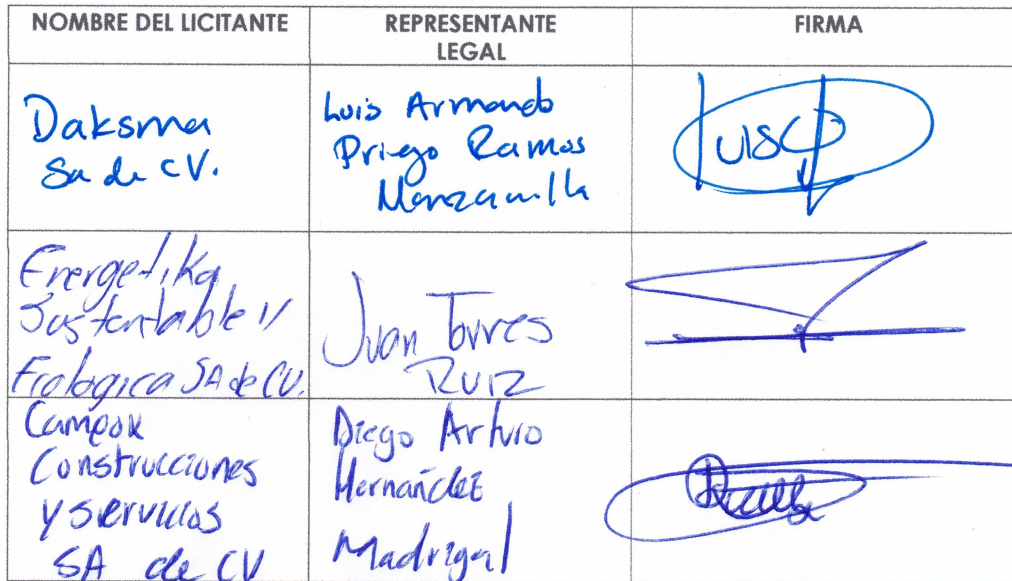 NOMBRE DEL LICITANTE
REPRESENTANTE
LEGAL
FIRMA
Daksma
Sa de CV.
Luis Armando
Priego Ramos
Manzanilla
Energetika
Sustentable y
Ecologica SA de CV.
Juan Torres
RUIZ
Cameox
Construcciones
y servicios
SA de CV
Diego Arturo
Hernández
Madrigal